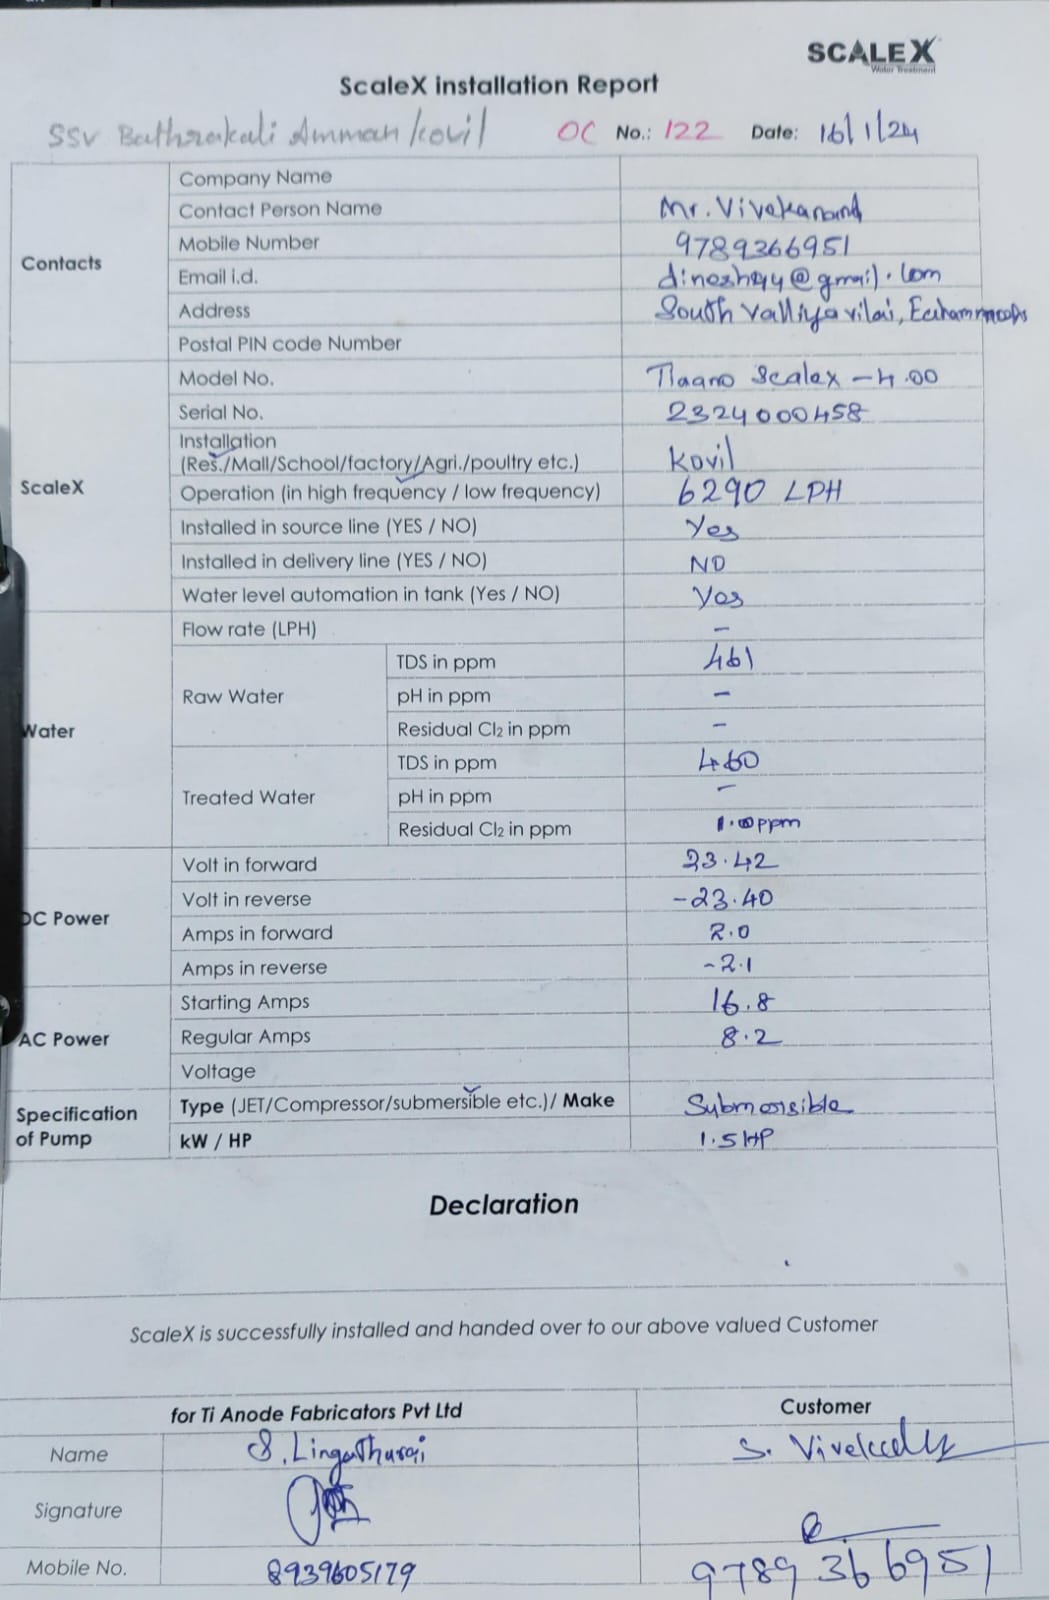 SCALEX
Water Treatment
ScaleX installation Report
SSV Bathrakali Amman kovil OC No.: 122 Date: 16/1/24
Contacts
Company Name
Contact Person Name Mr. Vivekanand
Mobile Number 9789366951
Email i.d. @gmail.com
Address South Valliyavilai,
Postal PIN code Number
ScaleX
Model No. Scalex - 4.00
Serial No. 2324000458
Installation
(Res./Mall/School/factory/Agri./poultry etc.) Kovil
Operation (in high frequency / low frequency) 6290 LPH
Installed in source line (YES / NO) Yes
Installed in delivery line (YES / NO) NO
Water level automation in tank (Yes / NO) Yes
Water
Flow rate (LPH) -
Raw Water
TDS in ppm 461
pH in ppm -
Residual Cl2 in ppm -
Treated Water
TDS in ppm 460
pH in ppm -
Residual Cl2 in ppm 1.00ppm
DC Power
Volt in forward 23.42
Volt in reverse -23.40
Amps in forward 2.0
Amps in reverse -2.1
AC Power
Starting Amps 16.8
Regular Amps 8.2
Voltage
Specification
of Pump
Type (JET/Compressor/submersible etc.)/ Make Submersible
kW / HP 1.5 HP
Declaration
ScaleX is successfully installed and handed over to our above valued Customer
for Ti Anode Fabricators Pvt Ltd Customer
Name S. Lingathurai S.
Signature
Mobile No. 8939605179 9789366951